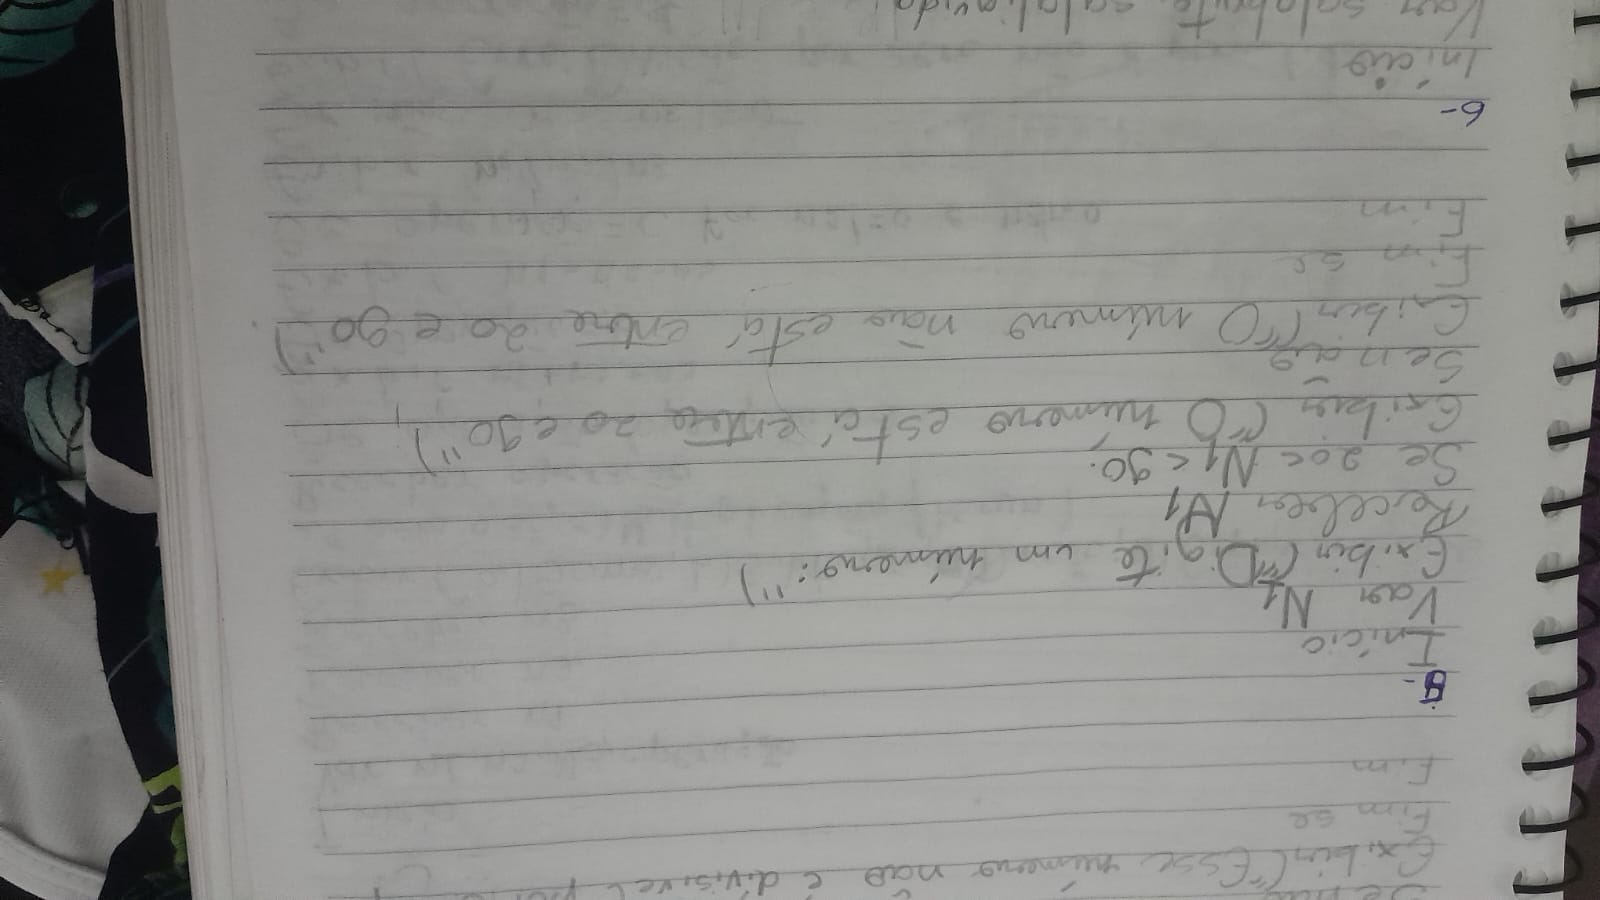 Senão
Exibir ("Esse número não é divisível por
Fim se
Fim
5-
Início
Var N1
Exibir ("Digite um número:")
Receber N1
Se 20 < N1 < 90.
Exibir ("O número está entre 20 e 90")
Senão
Exibir ("O número não está entre 20 e 90").
Fim se
Fim
6-
Início
Var salabruto, salaliquido